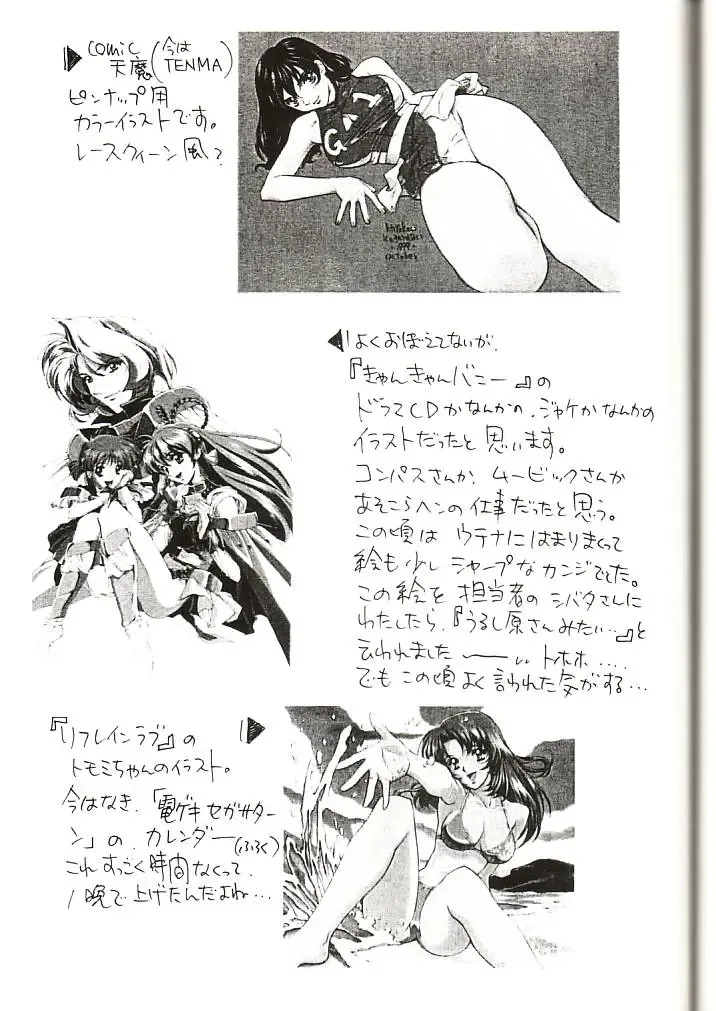 comic
天魔(今はTENMA)
ピンナップ用
カラーイラストです。
レースクィーン風?
GAL
october
よくおぼえてないが、
『きゃんきゃんバニー』の
ドラマCDかなんかの、ジャケかなんかの
イラストだったと思います。
コンパスさんか、ムービックさんか
あそこらヘンの仕事だったと思う。
この頃は ウテナにはまりまくって
絵も少し シャープなカンジでてた。
この絵を 担当者の シバタさんに
わたしたら、『うるし原さんみたい…』と
ひわれました ――… トホホ….
でもこの頃よく言われた気がする…
『リフレインラブ』の
トモミちゃんのイラスト。
今はなき、「電ゲキセガサター
ン」の カレンダー(ふろく)
これすっごく時間なくって、
1晩で上げたんだよね…